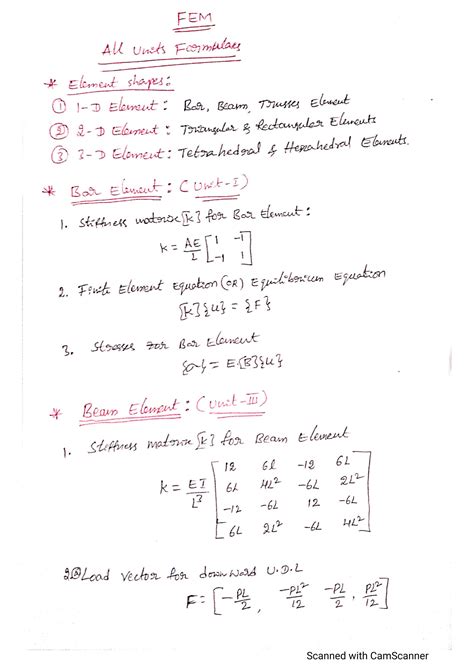 FEM
All Units Formulaes
* Element shapes:
① 1-D Element : Bar, Beam, Trusses Element
② 2-D Element : Triangular & Rectangular Elements
③ 3-D Element : Tetrahedral & Hexahedral Elements.
* Bar Element : (Unit-I)
1. Stiffness matrix [K] for Bar Element :
K = AE/L [1 -1
-1 1]
2. Finite Element Equation (OR) Equilibrium Equation
[K]{u} = {F}
3. Stresses for Bar Element
{σ} = E[B]{u}
* Beam Element : (Unit-III)
1. Stiffness matrix [K] for Beam Element
K = EI/L³ [12 6L -12 6L
6L 4L² -6L 2L²
-12 -6L 12 -6L
6L 2L² -6L 4L²]
Load Vector for downward U.D.L
F = [-PL/2, -PL²/12 -PL/2, PL²/12]
Scanned with CamScanner